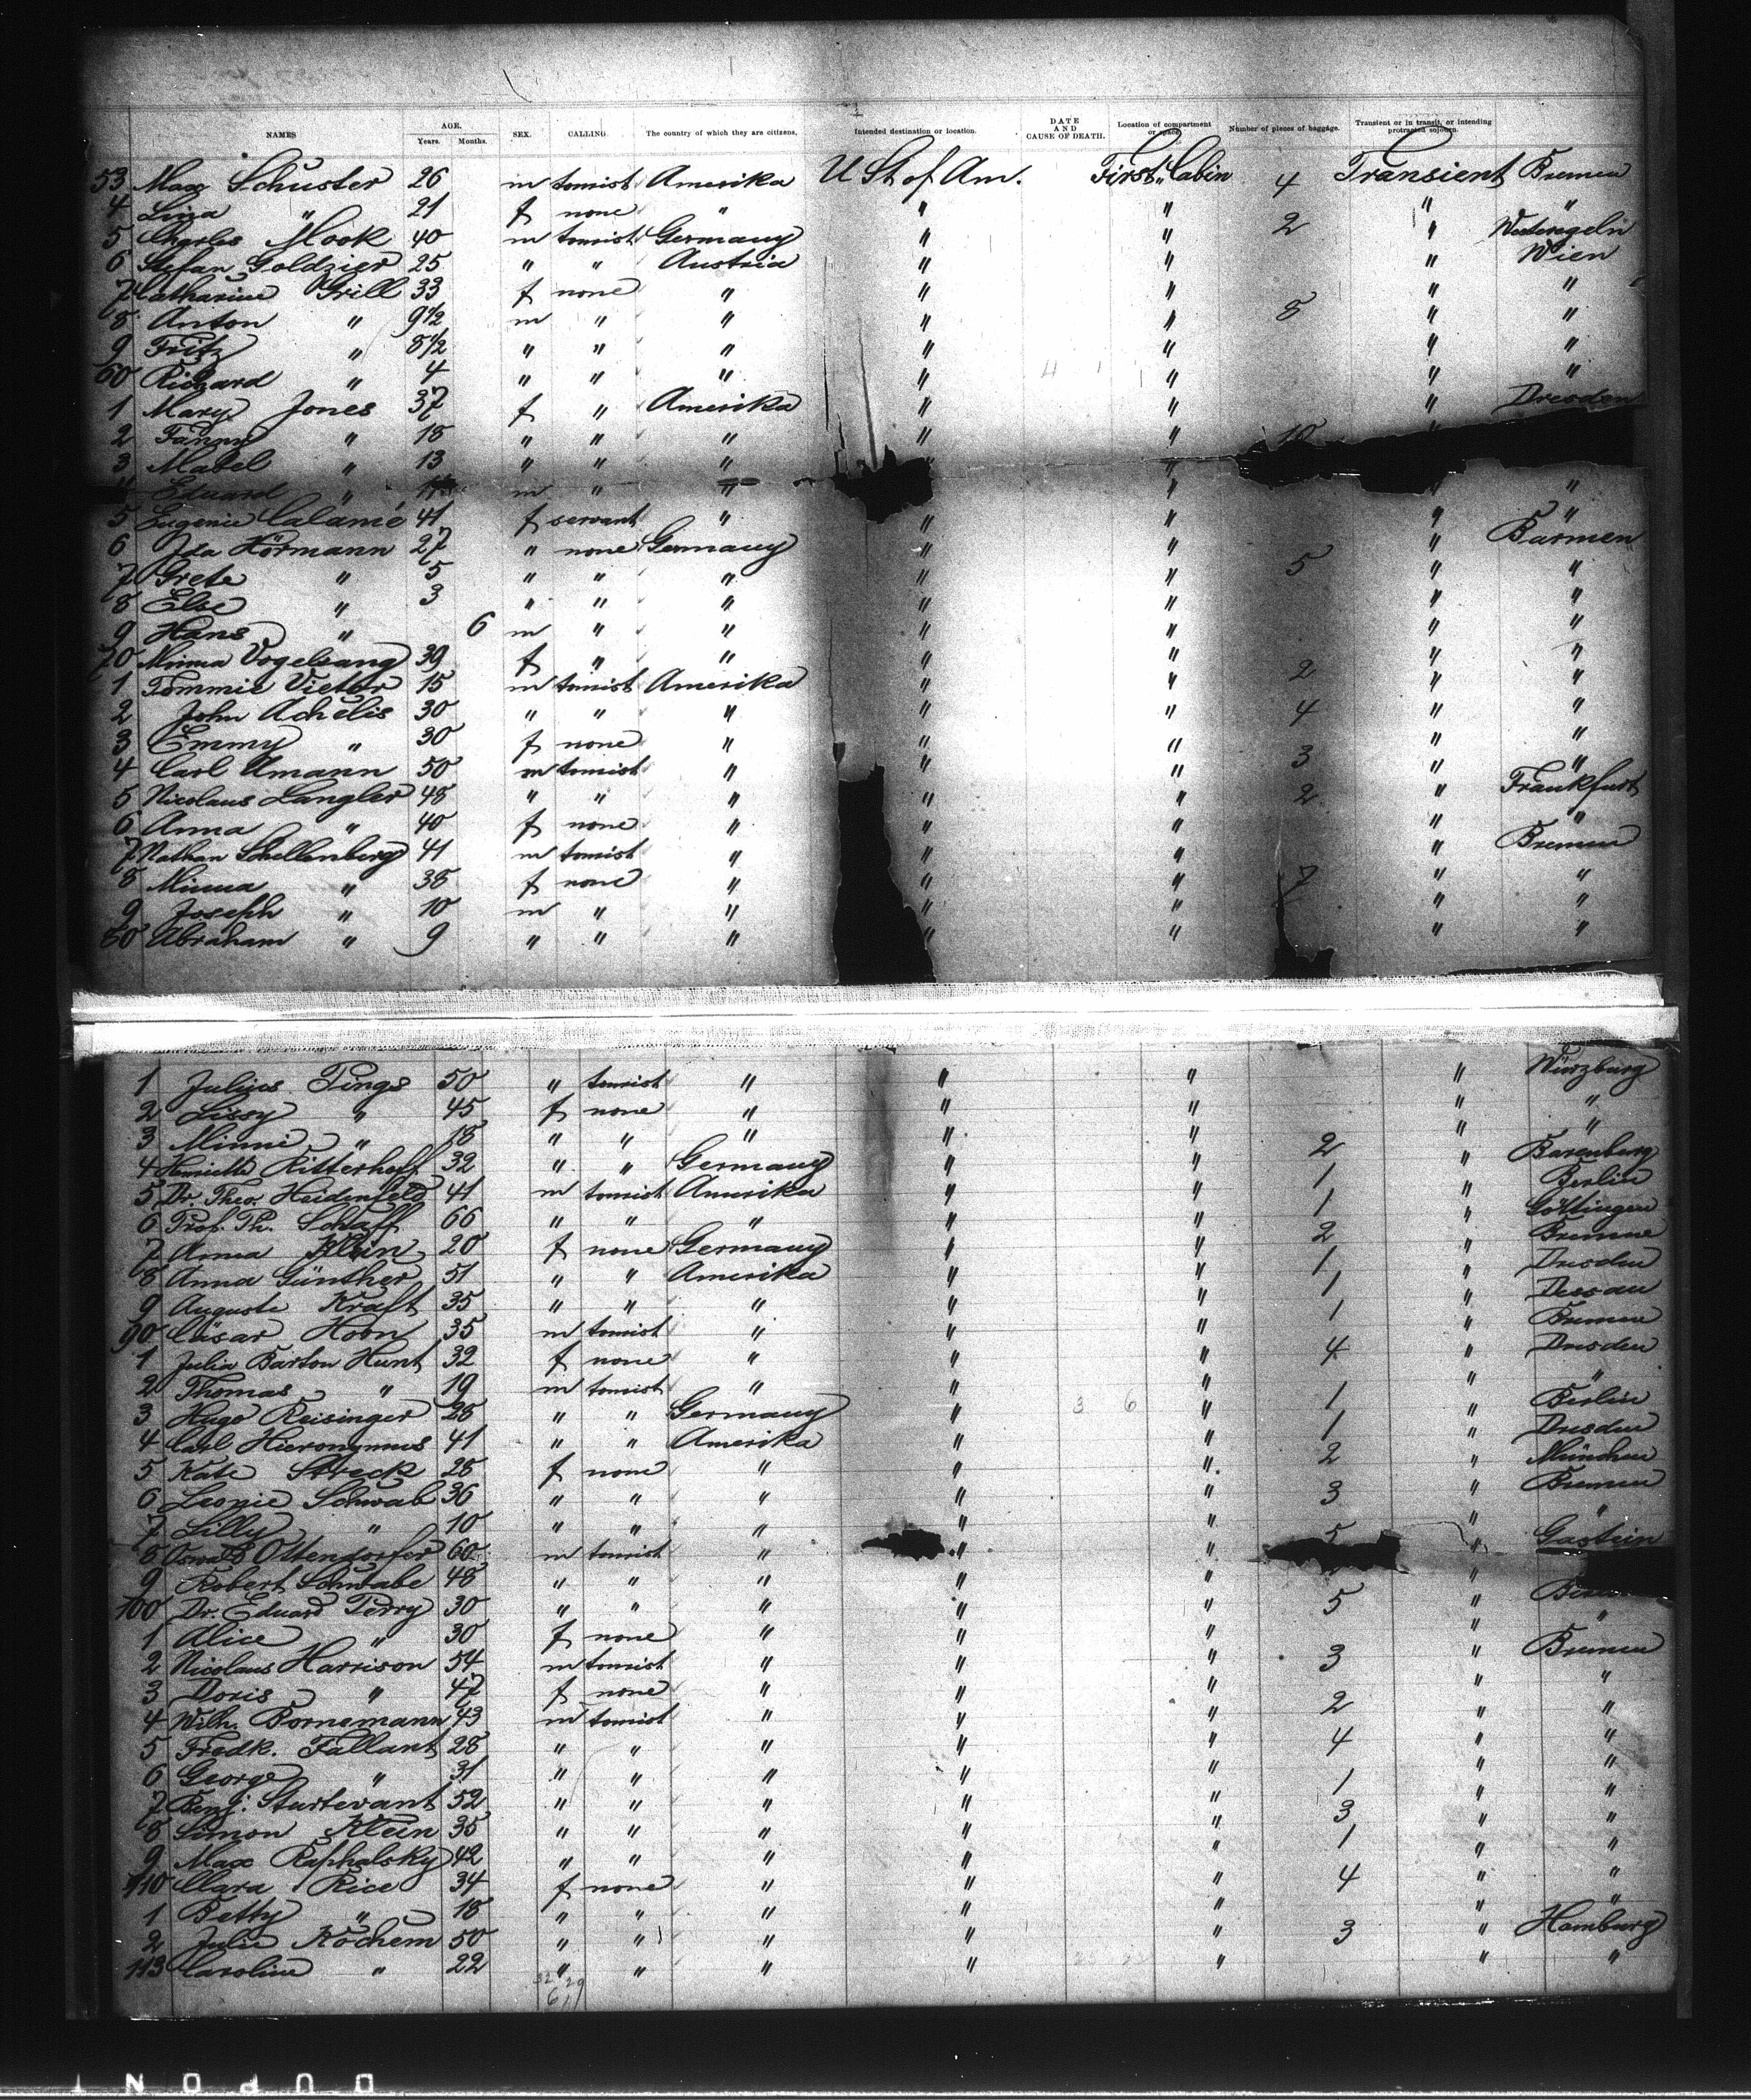 NAMES AGE. Years. Months. SEX. CALLING The country of which they are citizens. Intended destination or location. DATE AND CAUSE OF DEATH. Location of compartment or space. Number of pieces of baggage. Transient or in transit, or intending protracted sojourn.
53 Max Schuster 26 m tourist Amerika U St of Am. First Cabin 4 Transient Bremen
4 Lina " 21 f none " " " " "
5 Charles Mook 40 m tourist Germany " " 2 "
6 Stefan Goldzier 25 " " Austria " " " Wien
7 Catharine Grill 33 f none " " " " "
8 Anton " 9½ m " " " " 8 " "
9 Fritz " 8½ " " " " " " "
60 Richard " 4 " " " " " " "
1 Mary Jones 37 f " Amerika " " " Dresden
2 Fanny " 18 " " " " " 10 "
3 Mabel " 13 " " " "
4 Eduard " m " " " " "
5 Eugenie Calamé 41 f servant " " " " "
6 Ida Hörmann 27 " none Germany " " " Barmen
7 Grete " 5 " " " " " 5 " "
8 Else " 3 " " " " " " "
9 Hans " 6 m " " " " " "
70 Minna Vogelsang 39 f " " " " " "
1 Tommie Vietor 15 m tourist Amerika " " 2 " "
2 John Achelis 30 " " " " " 4 " "
3 Emmy " 30 f none " " " " "
4 Carl Amann 50 m tourist " " " 3 " "
5 Nicolaus Langler 48 " " " " " 2 " Frankfurt
6 Anna " 40 f none " " " " "
7 Nathan Schellenberg 41 m tourist " " " " Bremen
8 Minna " 38 f none " " " 7 " "
9 Joseph " 10 m " " " " " "
80 Abraham " 9 " " " " " " "
1 Julius Pings 50 " tourist " " " " Würzburg
2 Lissy " 45 f none " " " " "
3 Minni " 18 " " " " " 2 " "
4 Henriette Ritterhoff 32 " " Germany " " 1 " Barenburg
5 Dr. Theo. Heidenfeld 41 m tourist Amerika " " 1 " Berlin
6 Prof. Ph. Schaff 66 " " " " " 2 " Göttingen
7 Anna Klein 20 f none Germany " " 1 " Bremen
8 Anna Günther 51 " " Amerika " " 1 " Dresden
9 Auguste Kraft 35 " " " " " 1 " Dessau
90 Cäsar Horn 35 m tourist " " " " Bremen
1 Julia Barton Hunt 32 f none " " " 4 " Dresden
2 Thomas " 19 m tourist " " " " "
3 Hugo Reisinger 28 " " Germany " 3 6 " 1 " Berlin
4 Carl Hieronymus 41 " " Amerika " " 1 " Dresden
5 Kate Streck 28 f none " " " 2 " München
6 Leonie Schwab 36 " " " " " 3 " Bremen
7 Lilly " 10 " " " " " " "
8 Oswald Ottendorfer 60 m tourist " " " 5 " Gastein
9 Robert Schwabe 48 " " " " " "
100 Dr. Eduard Terry 30 " " " " " 5 "
1 Alice " 30 f none " " " " "
2 Nicolaus Harrison 54 m tourist " " " 3 " Bremen
3 Doris " 47 f none " " " " "
4 Wilh. Bornemann 43 m tourist " " " 2 " "
5 Fredk. Fallant 28 " " " " " 4 " "
6 George " 31 " " " " " " "
7 Benj. Sturtevant 52 " " " " " 1 " "
8 Simon Klein 35 " " " " " 3 " "
9 Max Raphalsky 42 " " " " " 1 " "
110 Clara Rice 34 f none " " " 4 " "
1 Betty " 18 " " " " " " "
2 Julie Köchem 50 " " " " " 3 " Hamburg
113 Caroline " 22 " " " " " " "
DUPONT